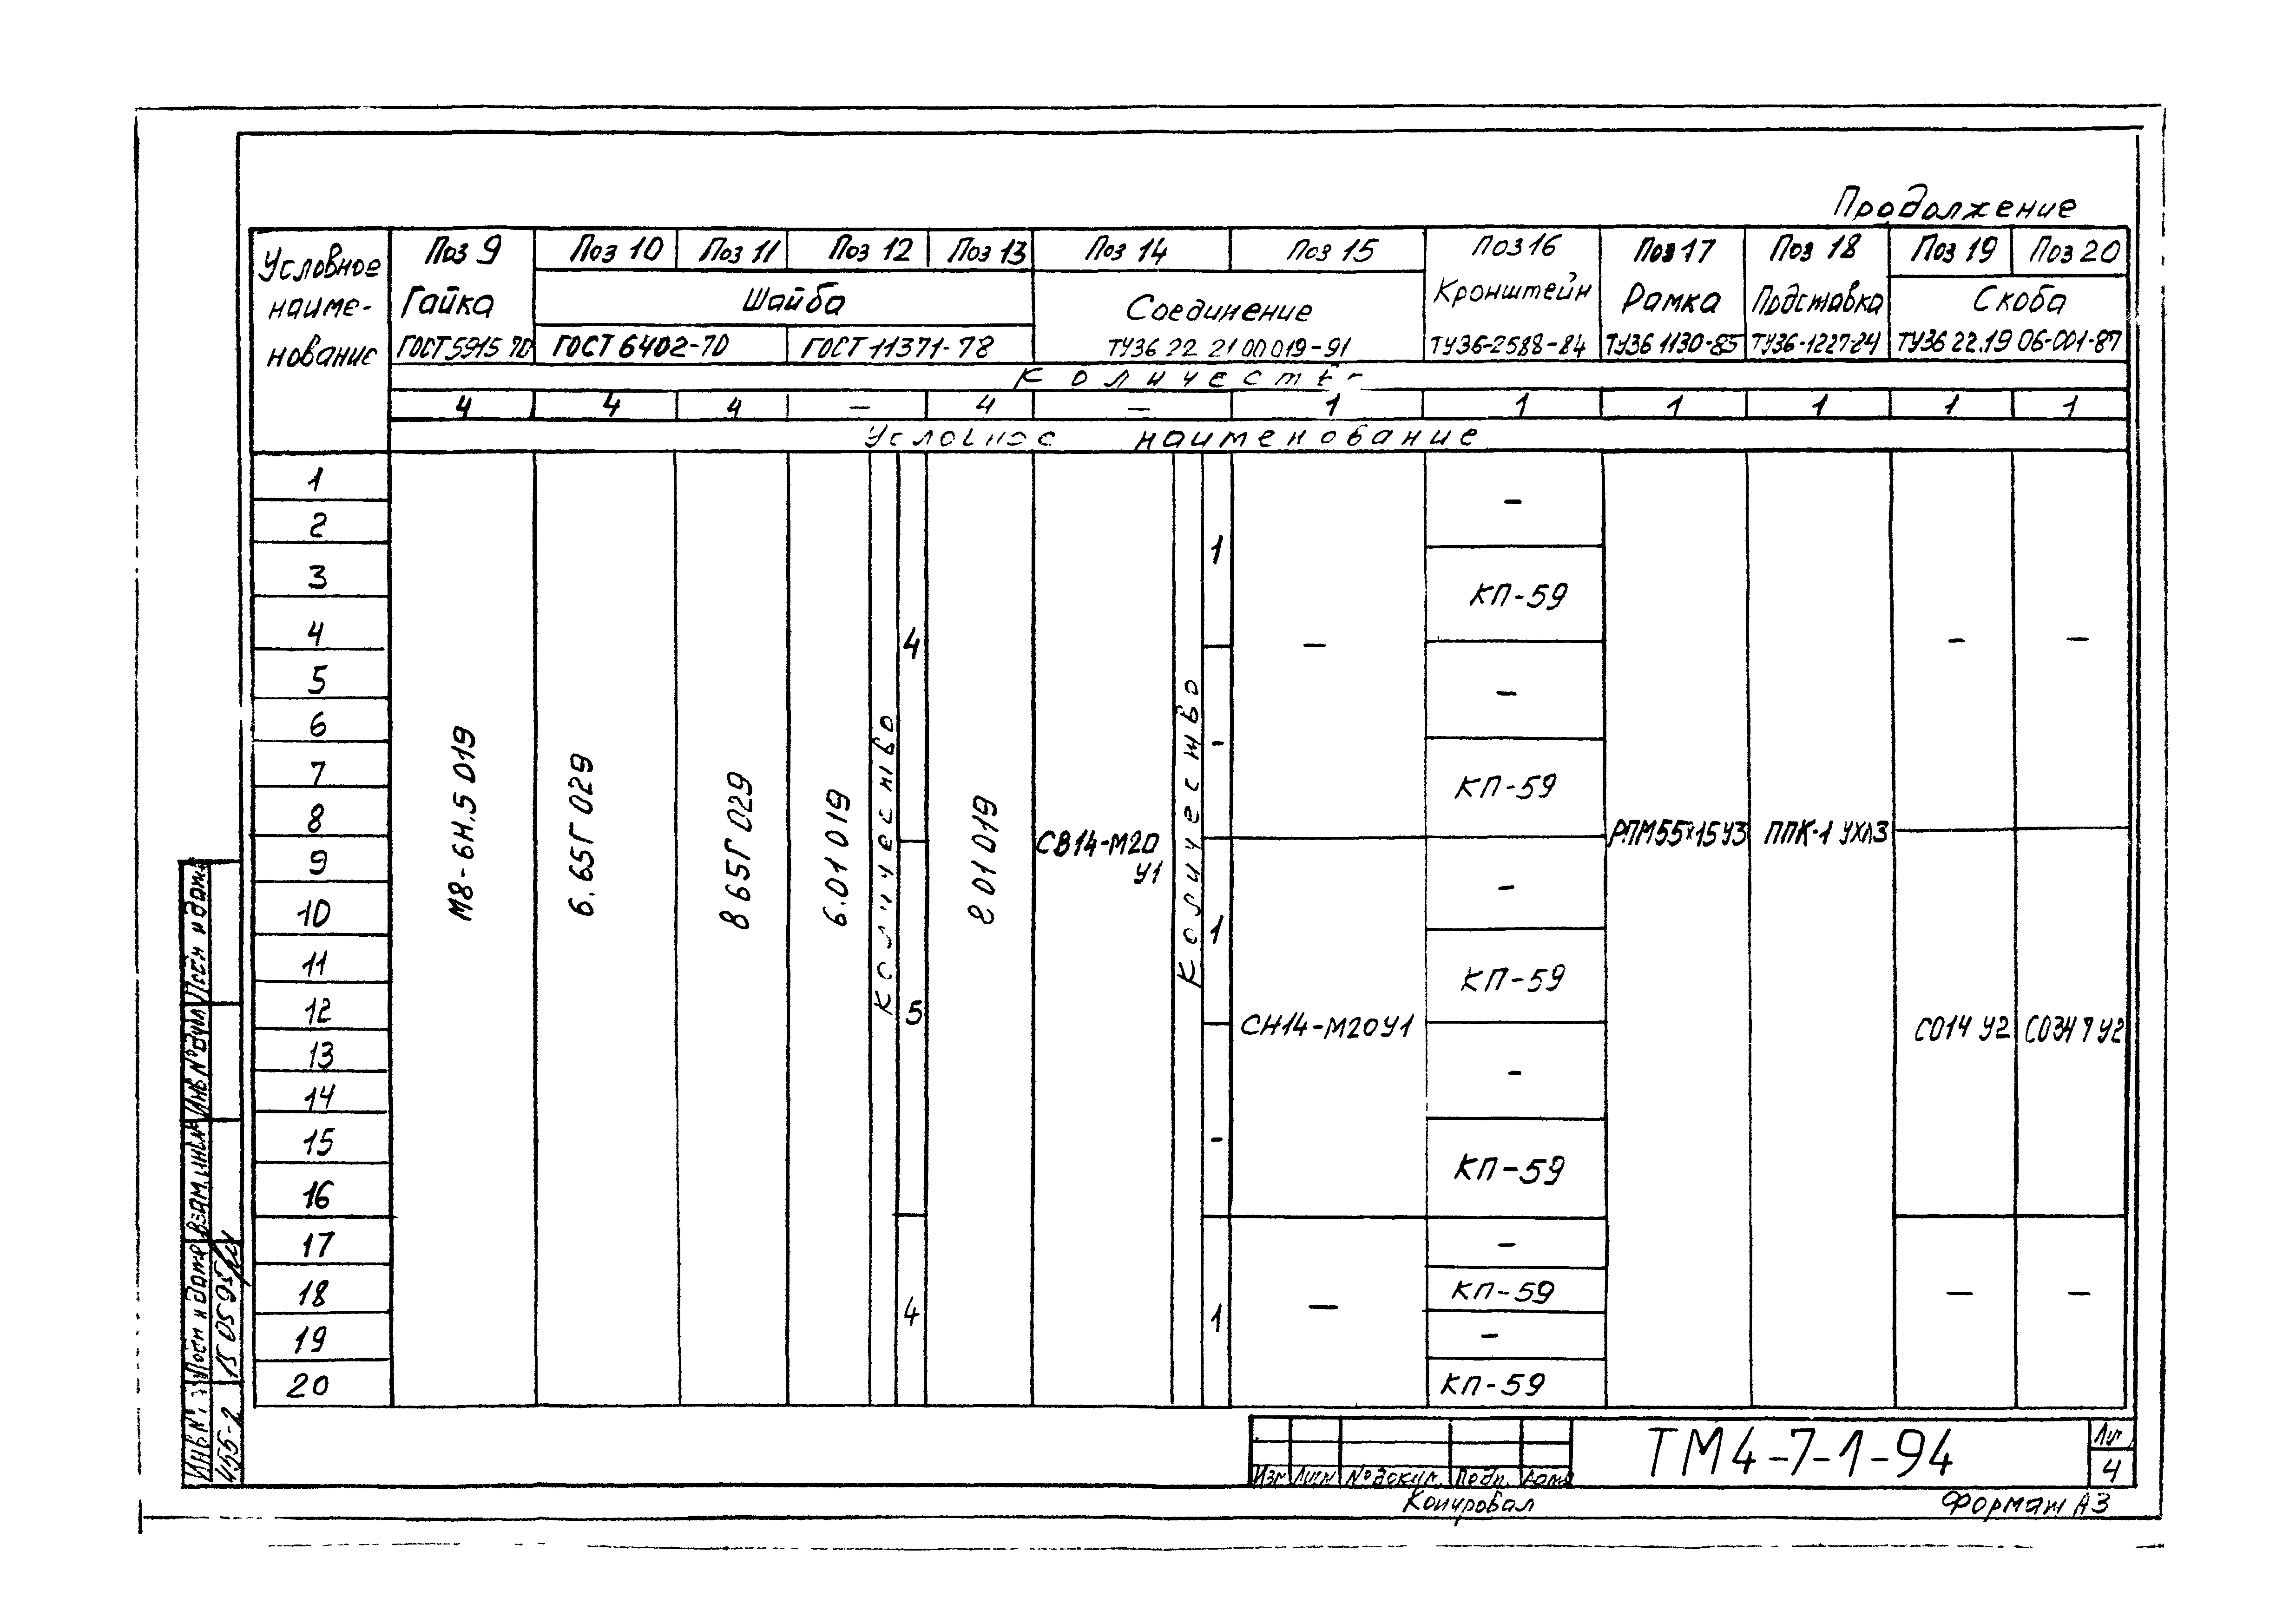 Продолжение
Условное наиме- нование
Поз 9 Поз 10 Поз 11 Поз 12 Поз 13 Поз 14 Поз 15 Поз 16 Поз 17 Поз 18 Поз 19 Поз 20
Гайка Шайба Соединение Кронштейн Рамка Подставка Скоба
ГОСТ 5915 70 ГОСТ 6402-70 ГОСТ 11371-78 ТУ36 22 21 00 019-91 ТУ36-2588-84 ТУ36 1130-85 ТУ36-1227-84 ТУ36 22.19 06-001-87
4 4 4 — 4 — 1 1 1 1 1 1
наименование
1
2 —
3 КП-59
4
5 —
6
7 КП-59
8
9 —
10
11 КП-59
12
13 —
14
15 КП-59
16
17 —
18 КП-59
19 —
20 КП-59
М8-6Н.5 019
6.65Г 029
8 65Г 029
6.01 019
Количество
4
5
4
8 01 019
СВ14-М20
У1
Количество
1
-
1
-
1
—
СН14-М20У1
—
РПМ55×15У3
ППК-1 УХЛ3
— —
СО14 У2
— —
Инв № дубл
Взам. инв №
Подп и дата
15 05 95
455-2
Изм Лист № докум. Подп. Дата
ТМ4-7-1-94
4
Копировал
Формат А3